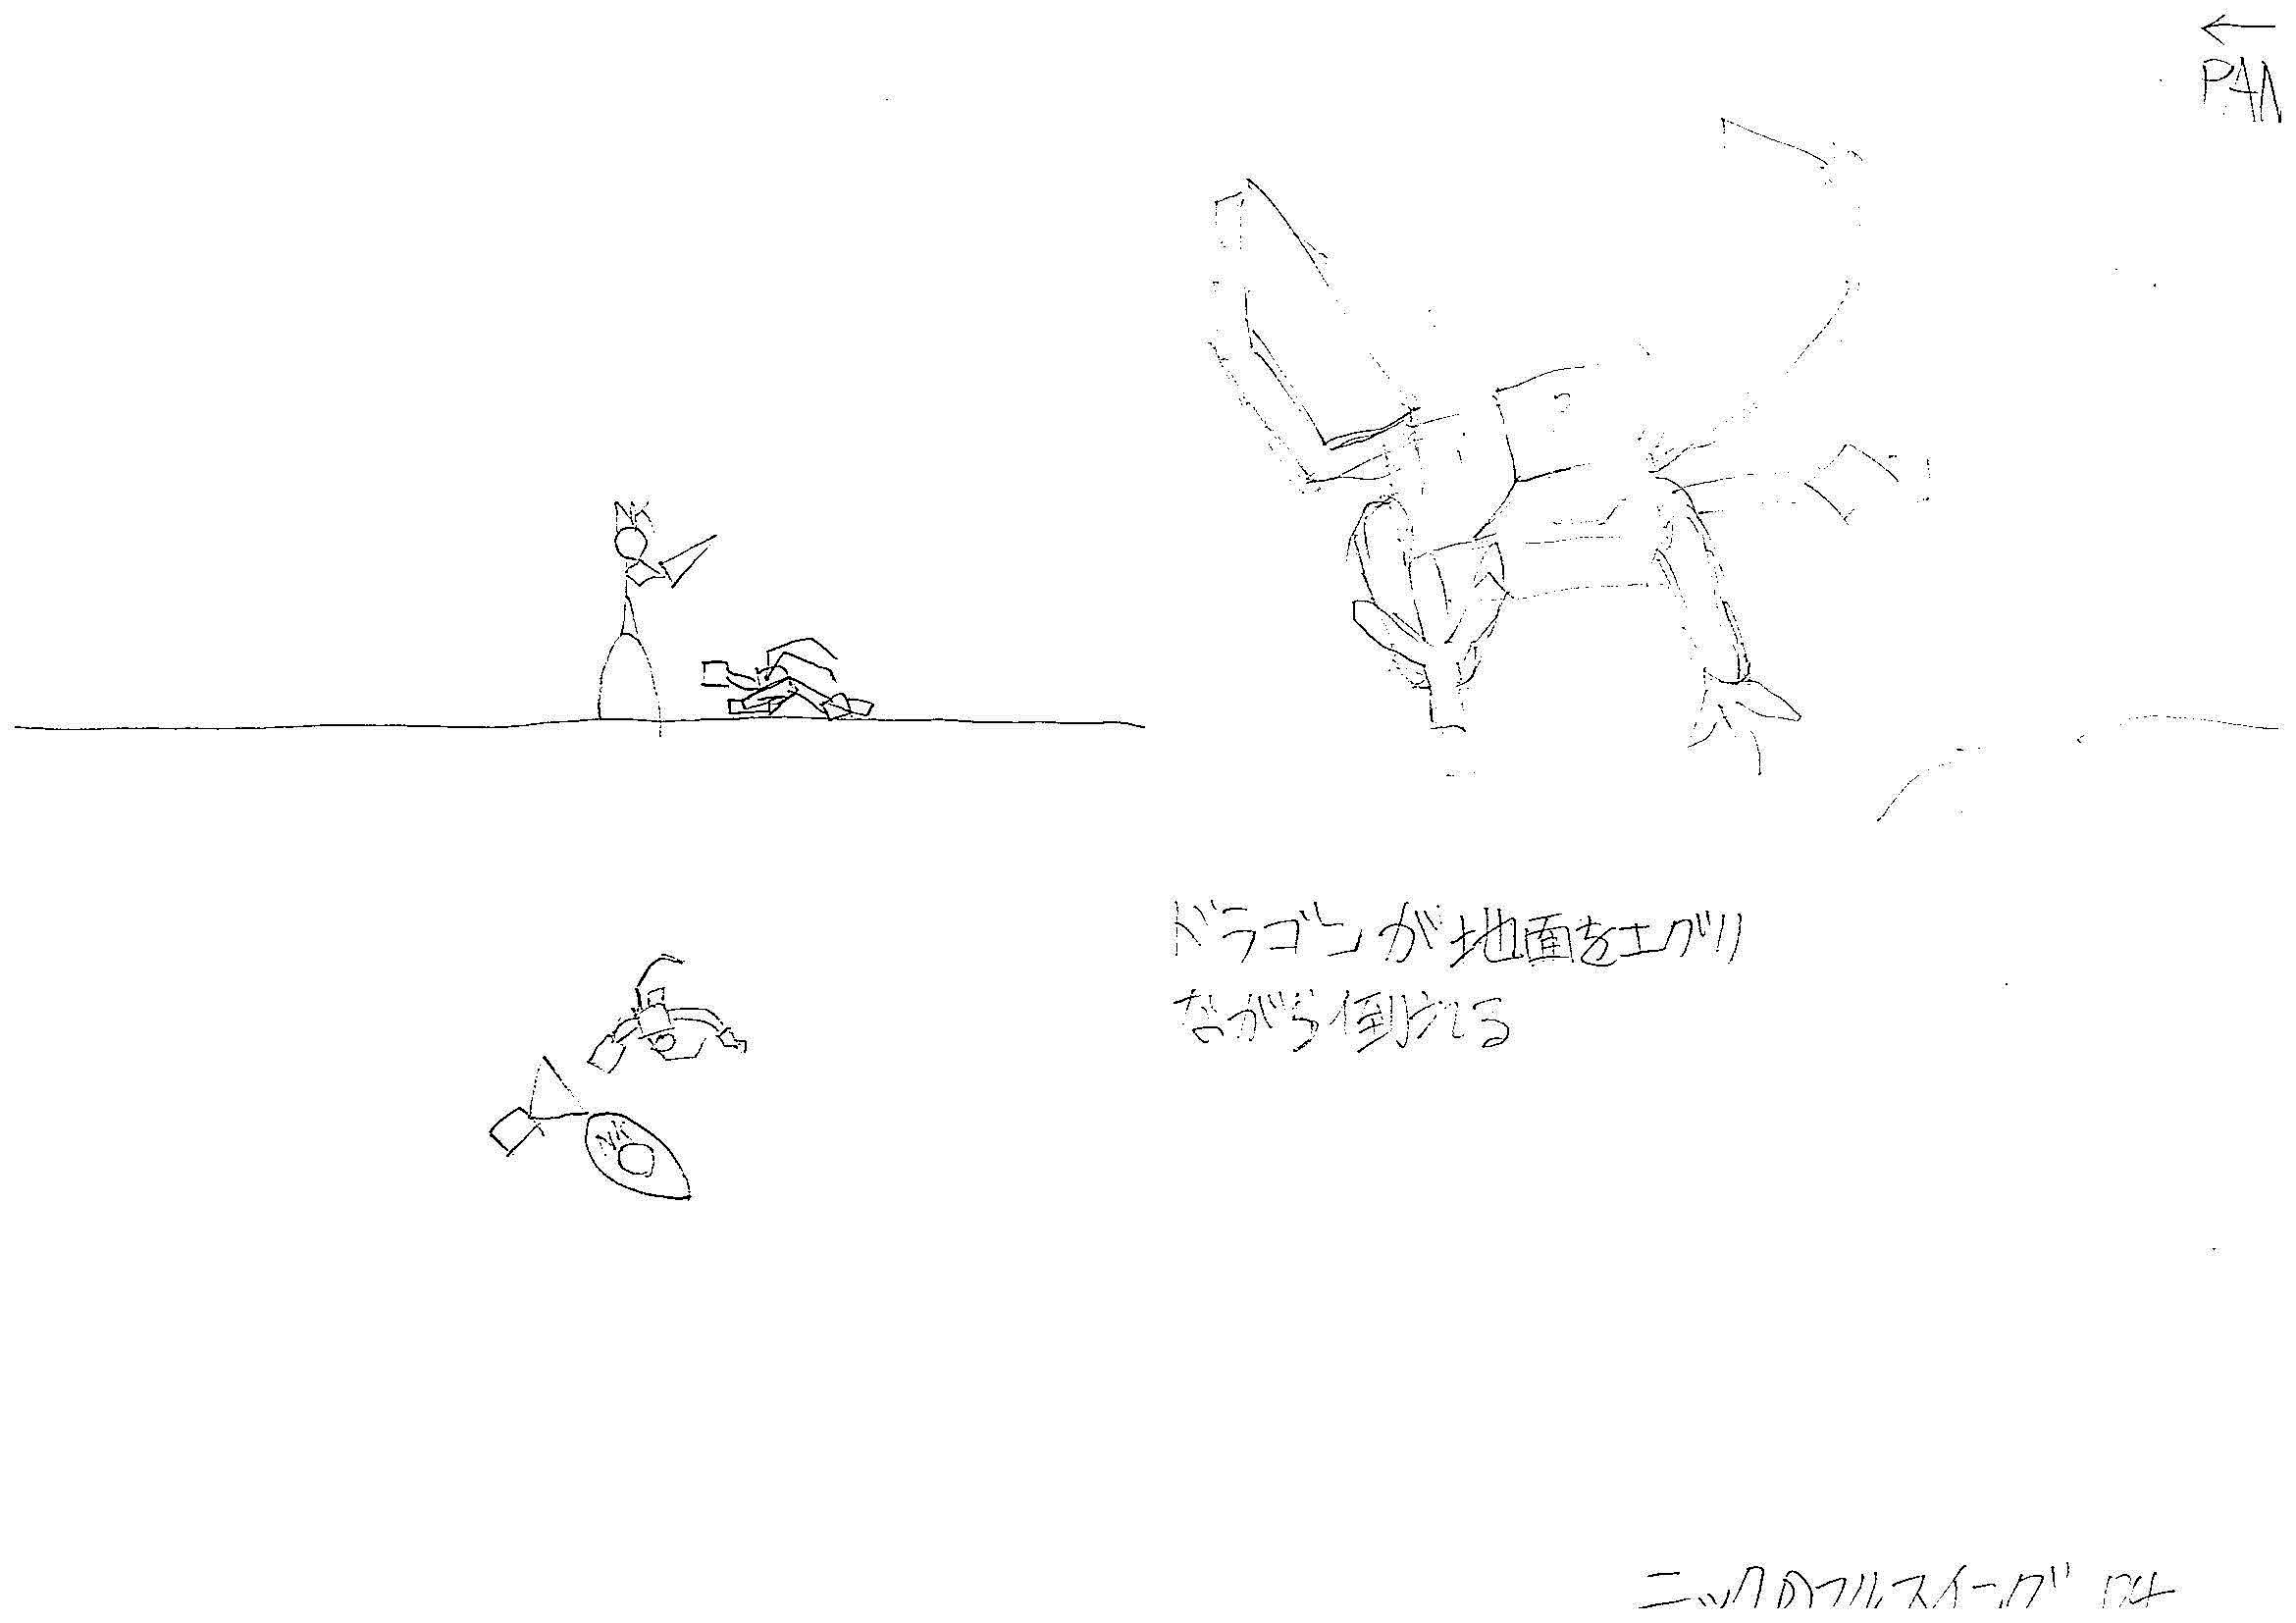 ←
PAN
NK
ドラゴンが地面をエグリ
ながら倒れる
NK
ニックのフルスイング P4